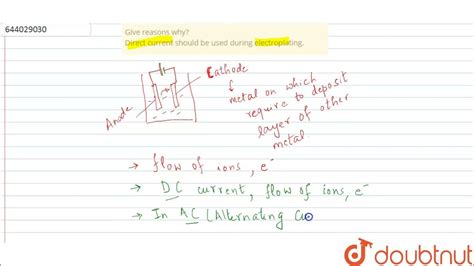 644029030
Give reasons why?
Direct current should be used during electroplating.
Cathode
metal on which
require to deposit
layer of other
metal
Anode
→ flow of ions, e⁻
→ DC current, flow of ions, e⁻
→ In AC (Alternating Cu
doubtnut